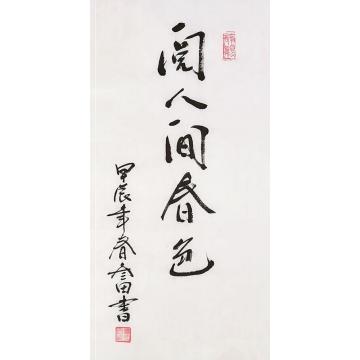 阅人间春色
甲辰年春奮书